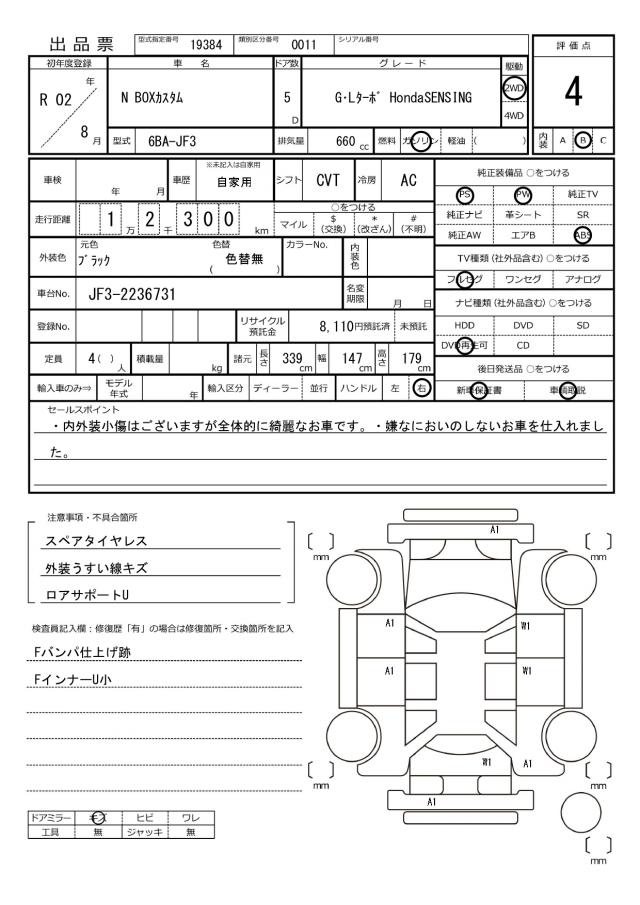 出品票
型式指定番号 19384 類別区分番号 0011 シリアル番号
初年度登録 車名 ドア数 グレード 駆動 評価点
R 02 年 8 月
N BOXカスタム 5 D G・Lターボ HondaSENSING 2WD 4WD
4
型式 6BA-JF3 排気量 660 cc 燃料 ガソリン 軽油 ( ) 内装 A B C
車検 年 月 車歴 ※未記入は自家用 自家用 シフト CVT 冷房 AC
走行距離 1 万 2 千 3 0 0 km ○をつける
マイル $ (交換) * (改ざん) # (不明)
外装色 元色 ブラック 色替 ( 色替無 ) カラーNo. 内装色
車台No. JF3-2236731 名変期限 月 日
登録No. リサイクル預託金 8,110円預託済 未預託
定員 4 ( ) 人 積載量 kg 諸元 長さ 339 cm 幅 147 cm 高さ 179 cm
輸入車のみ⇒ モデル年式 年 輸入区分 ディーラー 並行 ハンドル 左 右
純正装備品 ○をつける
PS PW 純正TV
純正ナビ 革シート SR
純正AW エアB ABS
TV種類 (社外品含む) ○をつける
フルセグ ワンセグ アナログ
ナビ種類 (社外品含む) ○をつける
HDD DVD SD
DVD再生可 CD
後日発送品 ○をつける
新車保証書 車輌取説
セールスポイント
・内外装小傷はございますが全体的に綺麗なお車です。・嫌なにおいのしないお車を仕入れまし
た。
注意事項・不具合箇所
スペアタイヤレス
外装うすい線キズ
ロアサポートU
検査員記入欄：修復歴「有」の場合は修復箇所・交換箇所を記入
Fバンパ仕上げ跡
FインナーU小
ドアミラー キズ ヒビ ワレ
工具 無 ジャッキ 無
A1
mm mm
A1 W1
A1 W1
W1 A1
mm mm
A1
mm